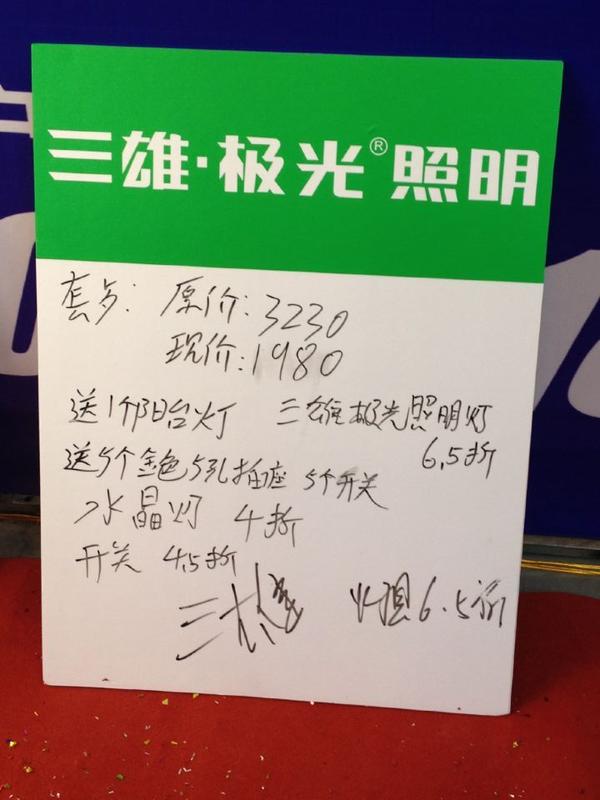 三雄·极光® 照明
套多: 原价: 3230
现价: 1980
送1个阳台灯 三雄极光照明灯
6.5折
送5个金色5孔插座 5个开关
水晶灯 4折
开关 4.5折
三雄 6.5折